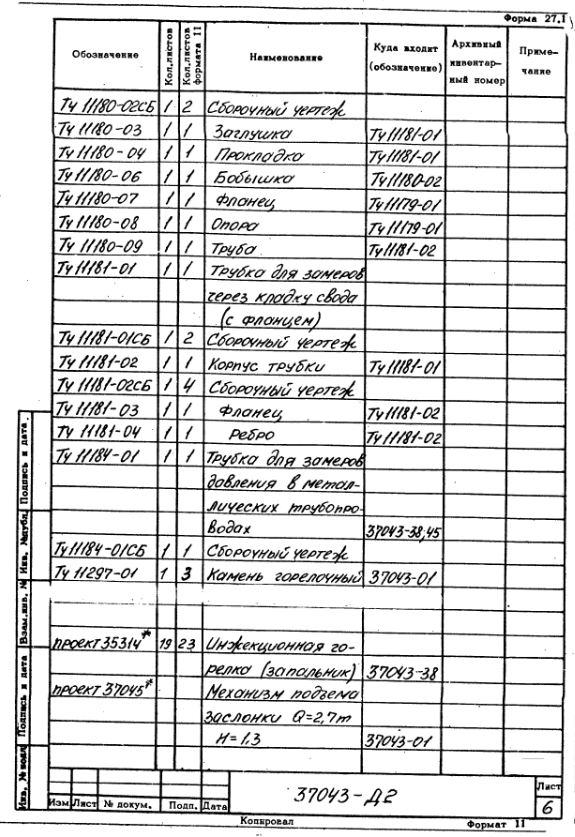 Форма 27.1
Обозначение | Кол.листов | Кол.листов формата 11 | Наименование | Куда входит (обозначение) | Архивный инвентарный номер | Примечание
ТУ 11180-02СБ 1 2 Сборочный чертеж
ТУ 11180-03 1 1 Заглушка ТУ 11181-01
ТУ 11180-04 1 1 Прокладка ТУ 11181-01
ТУ 11180-06 1 1 Бобышка ТУ 11180-02
ТУ 11180-07 1 1 Фланец ТУ 11179-01
ТУ 11180-08 1 1 Опора ТУ 11179-01
ТУ 11180-09 1 1 Труба ТУ 11181-02
ТУ 11181-01 1 1 Трубка для замеров
через кладку свода
(с фланцем)
ТУ 11181-01СБ 1 2 Сборочный чертеж
ТУ 11181-02 1 1 Корпус трубки ТУ 11181-01
ТУ 11181-02СБ 1 4 Сборочный чертеж
ТУ 11181-03 1 1 Фланец ТУ 11181-02
ТУ 11181-04 1 1 Ребро ТУ 11181-02
ТУ 11184-01 1 1 Трубка для замеров
давления в метал-
лических трубопро-
водах 37043-38,45
ТУ 11184-01СБ 1 1 Сборочный чертеж
ТУ 11297-01 1 3 Камень горелочный 37043-01
проект 35314* 19 23 Инжекционная го-
релка (запальник) 37043-38
проект 37045* Механизм подъема
заслонки Q=2,7т
H=1,3 37043-01
Инв. № подл. Подпись и дата Взам.инв. № Инв. № дубл. Подпись и дата
Изм Лист № докум. Подп. Дата
37043-Д2
Лист
6
Копировал Формат 11